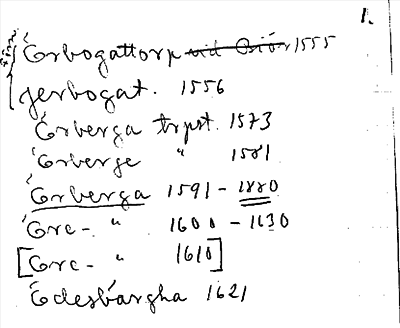 1.
Erbogattorp vid Biör 1555
jerbogat. 1556
Erberga trpst. 1573
Erberge " 1581
Erberga 1591 - 1880
Erc- " 1600 - 1630
[Erc- " 1610]
Edesbärgha 1621